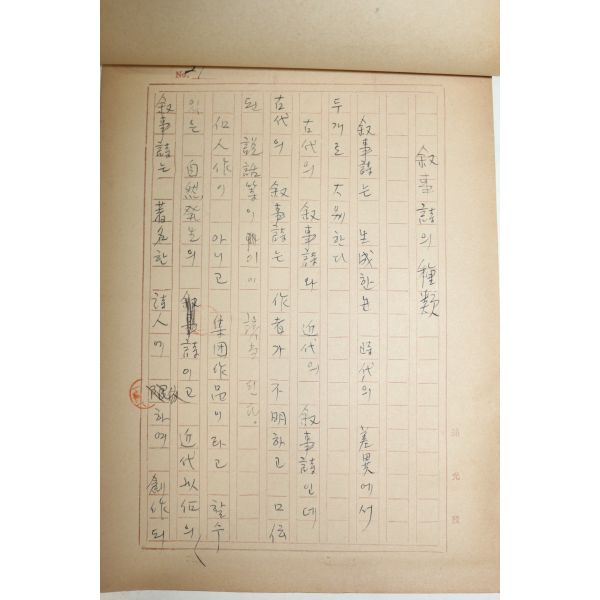 No. 21
敍事詩의 種類
敍事詩는 生成한는 時代의 差異에서
두개로 大別한다
古代의 敍事詩와 近代의 敍事詩인데
古代의 敍事詩는 作者가 不明하고 口伝
된 說話等이
個人作이 아니고 集団作品이라고 할수
있은 自然発生의 敍事詩이고 近代以后의
敍事詩는 著名한 詩人에 하여 創作되